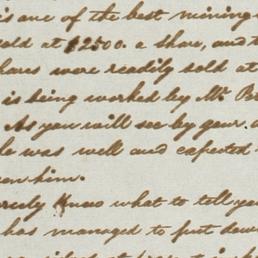 is one of the best mining
sold at $2500. a share, and t
hares were readily sold at
is being worked by Mr Be
As you will see by your
le was well and expected
on him.
know what to tell you
has managed to put dow